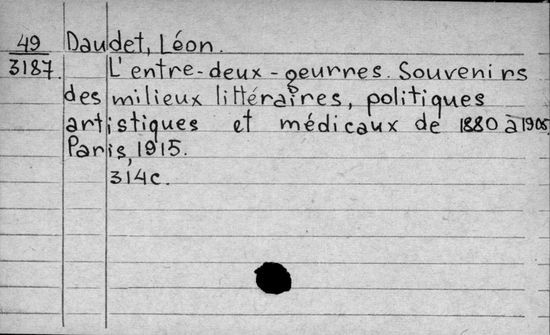 49 Daudet, Léon.
3187. L'entre-deux-geurres. Souvenirs
des milieux littéraires, politiques
artistiques et médicaux de 1880 à 1905,
Paris, 1915.
314c.